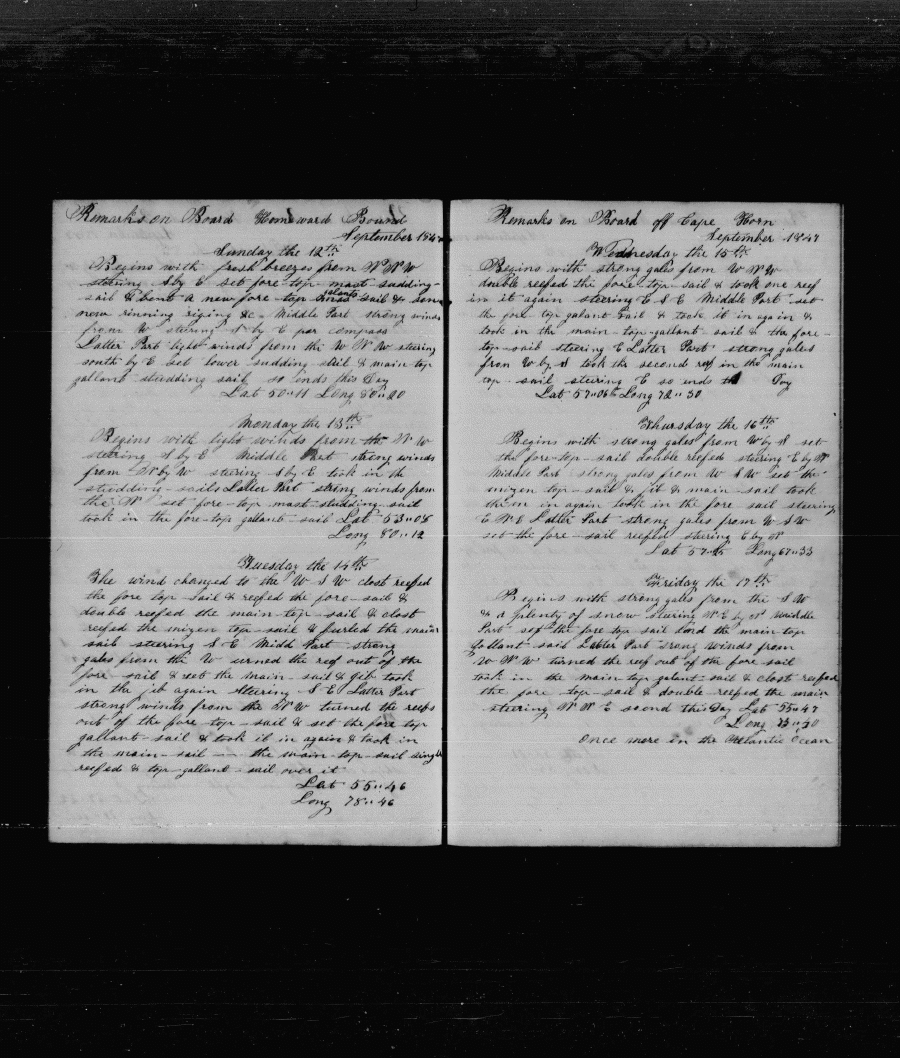 Remarks on Board Homeward Bound
September 184
Sunday the 12th
Begins with fresh breezes from W N W
steering S by E set fore-top-mast sudding-
sail & bent a new fore-top galant sail & som
new rinning riging &c - Middle Part strong winds
from W steering S by E per compass
Latter Part light winds from the W N W steering
south by E set lower sudding sail & main-top
gallant studding sail so ends this Day
Lat 50"11 Long 80"20
Monday the 13th
Begins with light winds from the N W
steering S by E Middle Part strong winds
from N by W steering S by E took in the
studding-sails Latter Part strong winds from
the N set fore-top mast studding-sail
took in the fore-top gallant-sail Lat 53"08
Long 80"12
Tuesday the 14th
The wind changed to the W S W clost reefed
the fore top sail & reefed the fore-sail &
double reefed the main-top-sail & clost
reefed the mizen top-sail & furled the main
sail steering S-E Midd Part strong
gales from the W urned the reef out of the
fore-sail & set the main-sail & jib took
in the jib again Stering S E Latter Part
strong winds from the N W turned the reefs
out of the fore top-sail & set the fore top
gallant-sail & took it in again & took in
the main-sail the main-top-sail single
reefed & top-gallant-sail over it
Lat 55"46
Long 78"46
Remarks on Board off Cape Horn
September 1847
Wednesday the 15th
Begins with strong gales from W N W
double reefed the fore-top-sail & took one reef
in it again steering E S E Middle Part set
the fore top galant sail & took it in again &
took in the main-top-gallant sail & the fore-
top-sail steering E Latter Part strong gales
from W by S took the second reef in the main
top-sail steering E so ends Day
Lat 57"06 Long 72"30
Thursday the 16th
Begins with strong gales from W by S set
the fore-top-sail double reefed steering E by N
Middle Part strong gales from W S W set the
mizen top-sail & jib & main-sail took
them in again took in the fore sail steering
E N E Latter Part strong gales from W S W
set the fore-sail reefed steering E by N
Lat 57"25 Long 67"33
Friday the 17th
Begins with strong gales from the S W
& a plenty of snow steering N E by N Middle
Part set the fore top sail and the main top
gallant sail Latter Part srong winds from
W N W turned the reef out of the fore sail
took in the main-top galant-sail & clost reefed
the fore top-sail & double-reefed the main
steering N N E soend this Day Lat 55"47
Long
Once more in the Atlantic Ocean